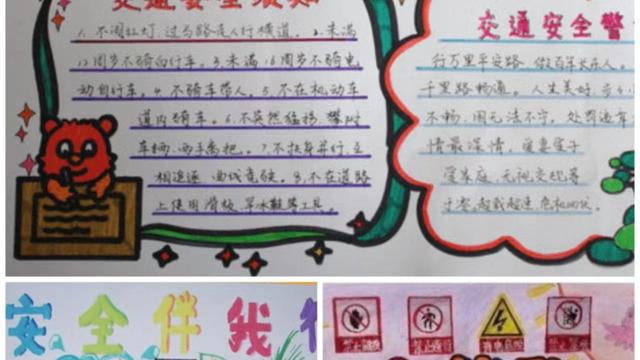 交通安全须知
1、不闯红灯,过马路走人行横道。2、未满
12周岁不骑自行车。3、未满16周岁不骑电
动自行车。4、不骑车带人。5、不在机动车
道内骑车。6、不突然猛拐、攀附
车辆、两手离把。7、不扶身并行、互
相追逐、曲线竞驶。8、不在道路
上使用滑板、旱冰鞋等工具。
交通安全警
行万里平安路,做百年长乐人。
千里路畅通。人生美好,
不畅,国无法不宁。处罚违章
情最深情,爱妻爱子
爱家庭,无视交规等
于零。超载超速,危机四伏。
安全伴我行
禁止
禁止